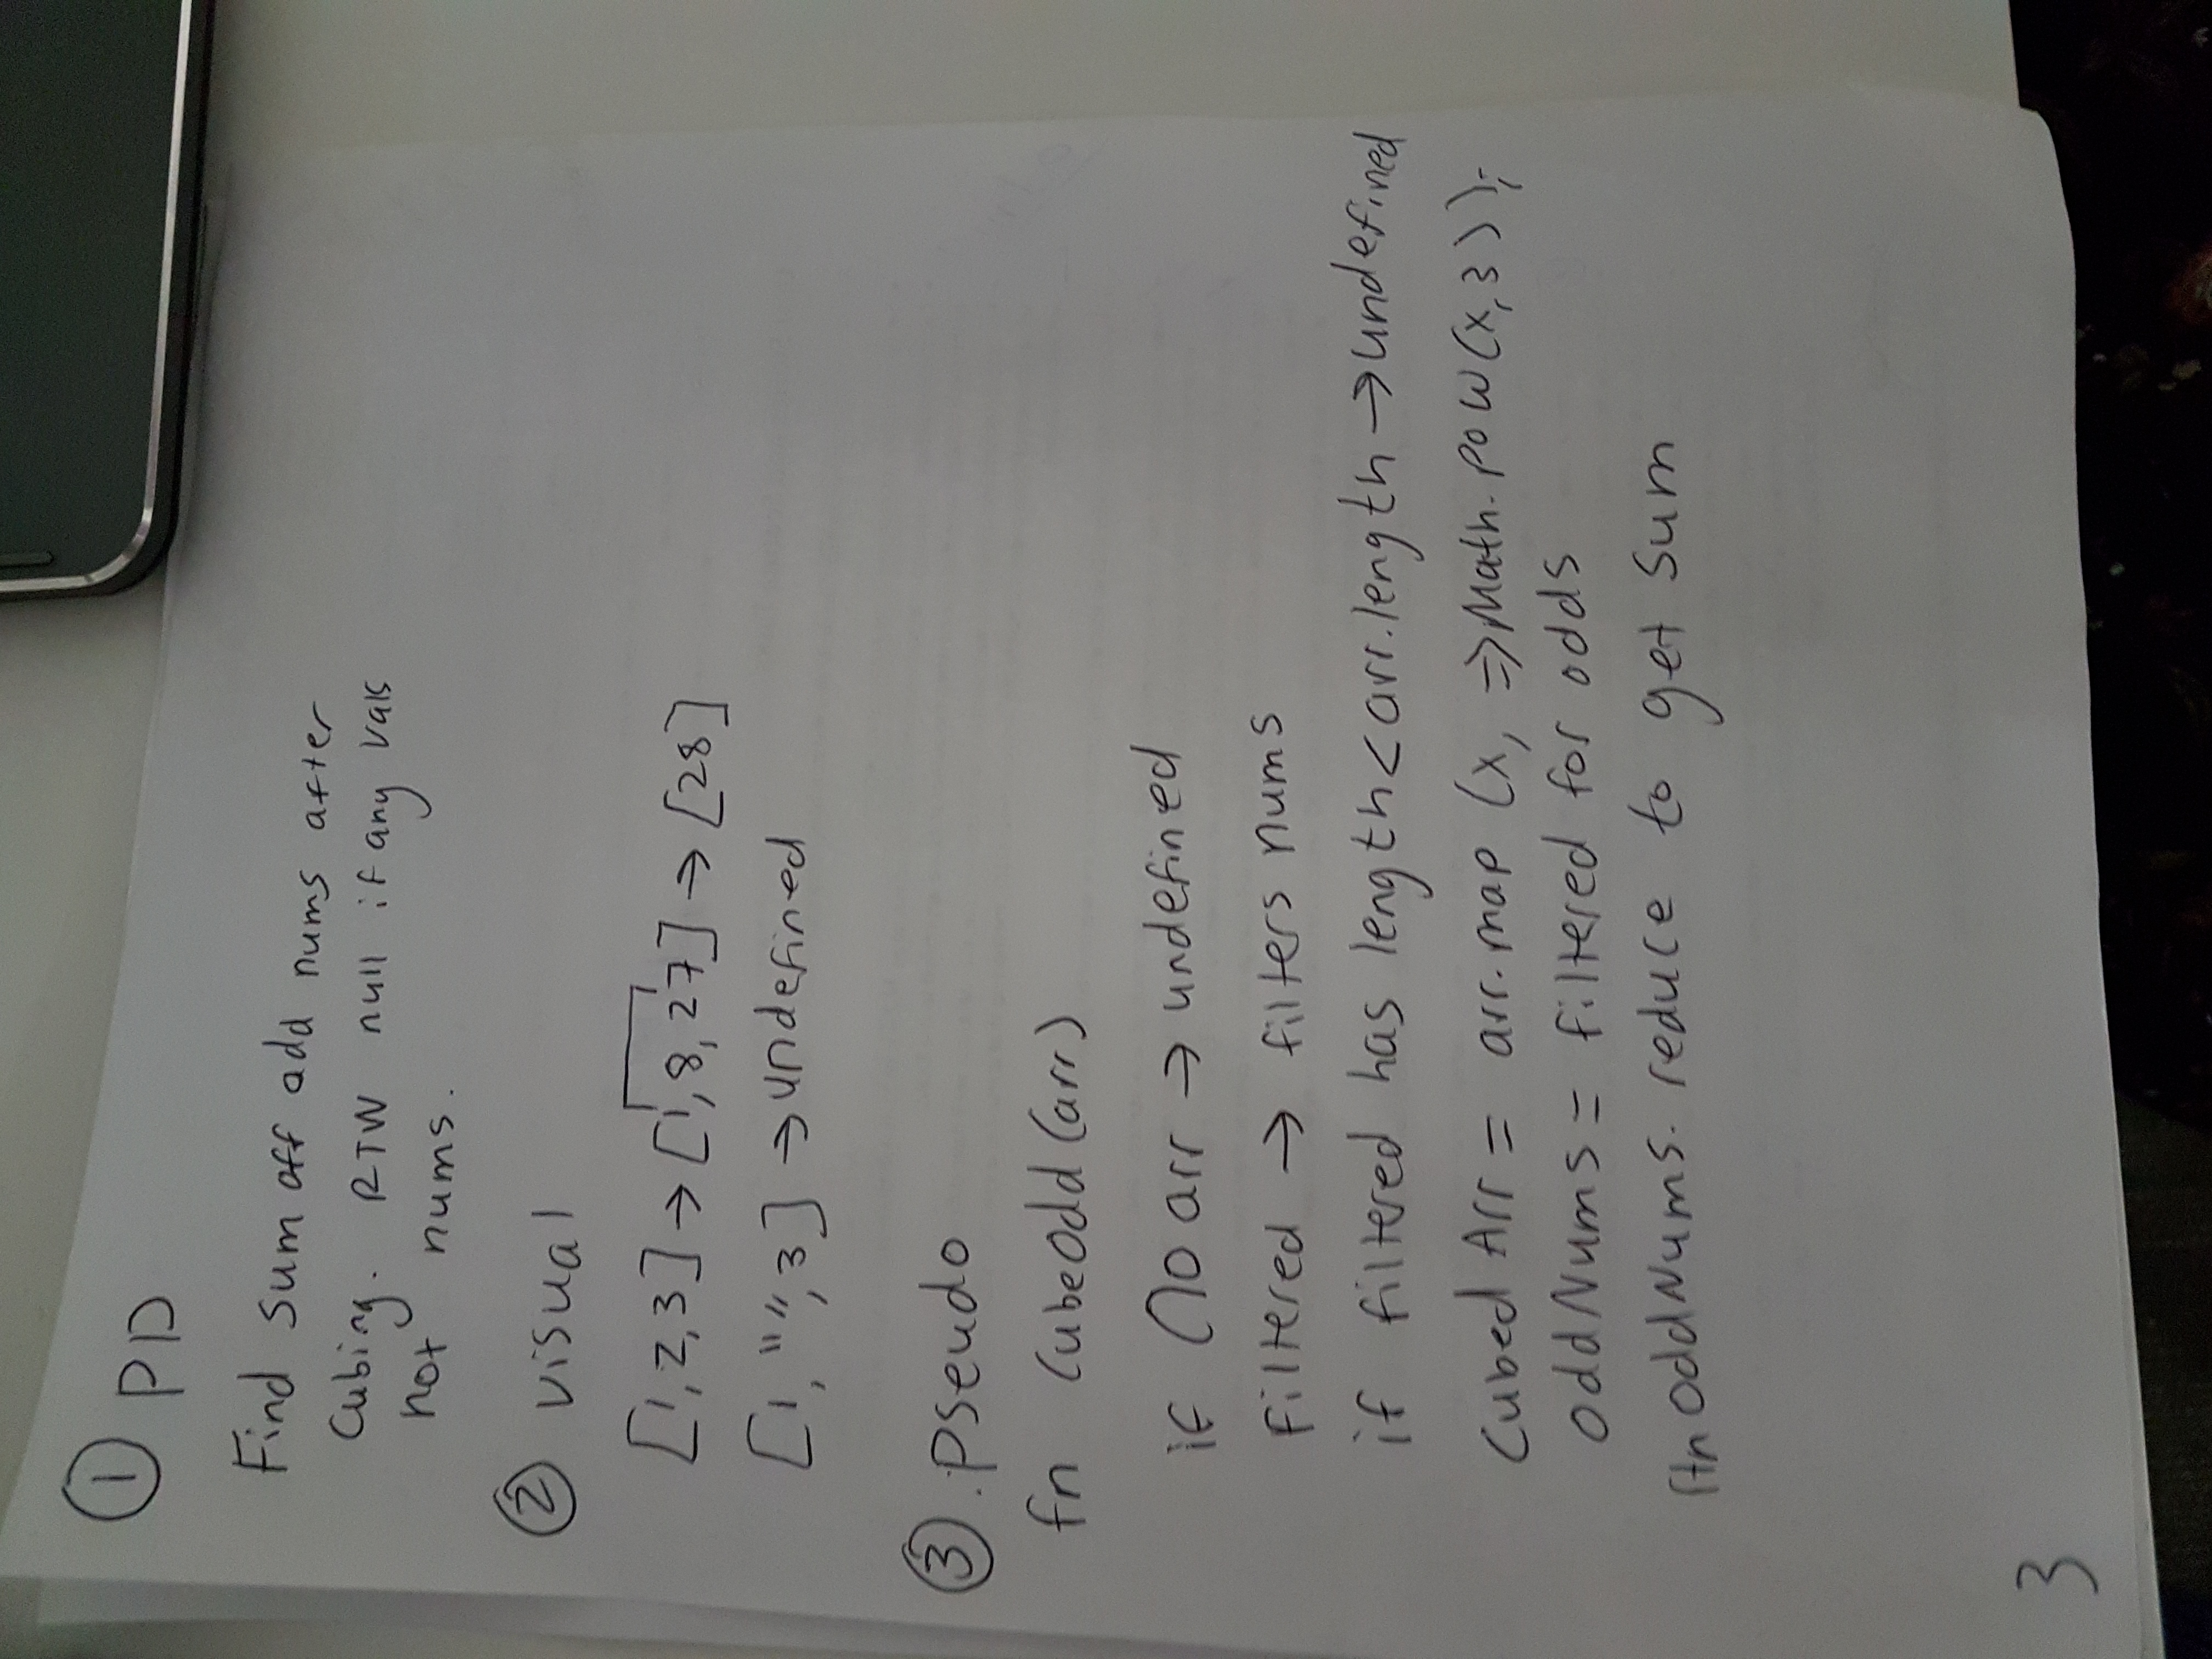 ① PD
Find sum off odd nums after
cubing. RTW null if any vals
not nums.
② visual
[1,2,3] → [1,8,27] → [28]
[1, "", 3] → undefined
③ .pseudo
fn cubeOdd (arr)
if no arr → undefined
filtered → filters nums
if filtered has length < arr.length → undefined
cubed Arr = arr.map (x, => Math.pow(x,3));
oddNums = filtered for odds
rtn oddNums. reduce to get sum
3